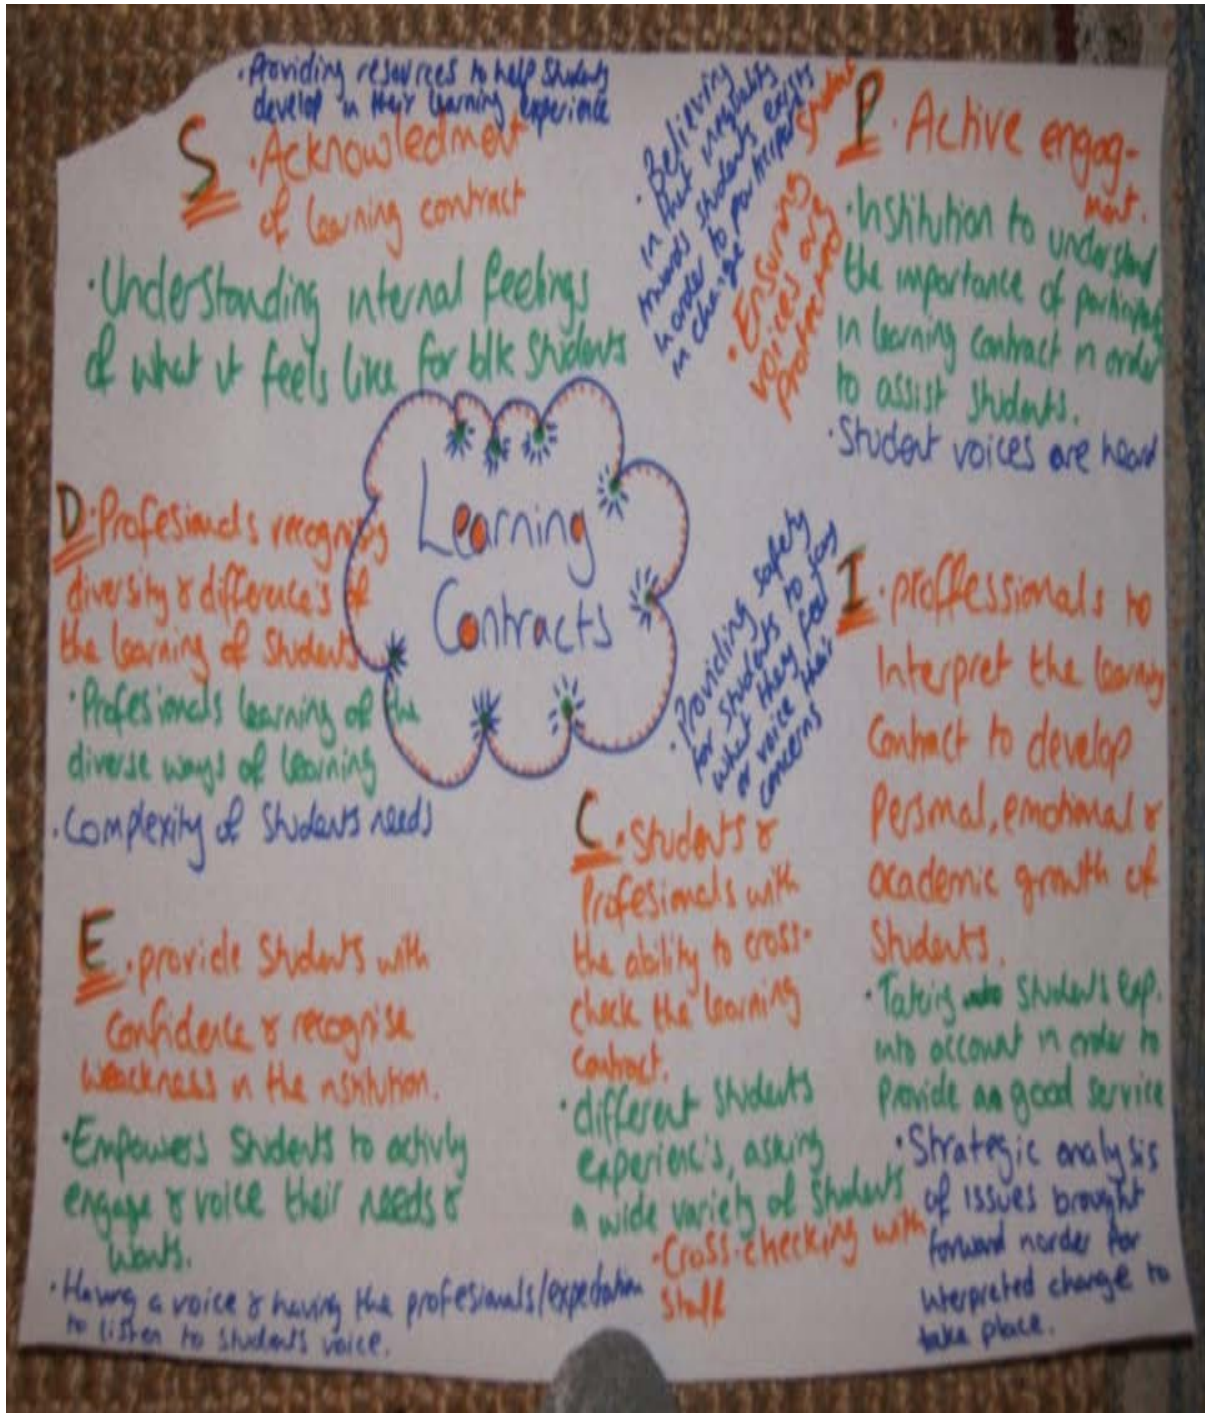 · Providing resources to help students
develop in their learning experience
S · Acknowledment
of learning contract
· Understanding internal feelings
of what it feels like for blk students
· Believing
in that inequality
towards students exists
in order to participate
in change
· Ensuring student
voices are
protected
P · Active engag-
ment.
· Institution to understand
the importance of participating
in learning contract in order
to assist students.
· Student voices are heard
Learning
Contracts
D · Profesionals recognising
diversity & difference's of
the learning of students
· Profesionals learning of the
diverse ways of learning
· Complexity of students needs
· Providing safety
for students to
what they feel
or voice their
concerns
I · proffessionals to
Interpret the learning
Contract to develop
Personal, emotional &
academic growth of
Students.
· Taking into students exp.
into account in order to
Provide an good service
· Strategic analysis
of issues brought
forward in order for
interpreted change to
take place.
C · Students &
Profesionals with
the ability to cross-
check the learning
contract.
· different students
experienc's, asking
a wide variety of students
· Cross-checking with
staff
E · provide students with
Confidence & recognise
weackness in the institution.
· Empowers students to activly
engage & voice their needs &
wants.
· Having a voice & having the profesionals/expectation
to listen to students voice.